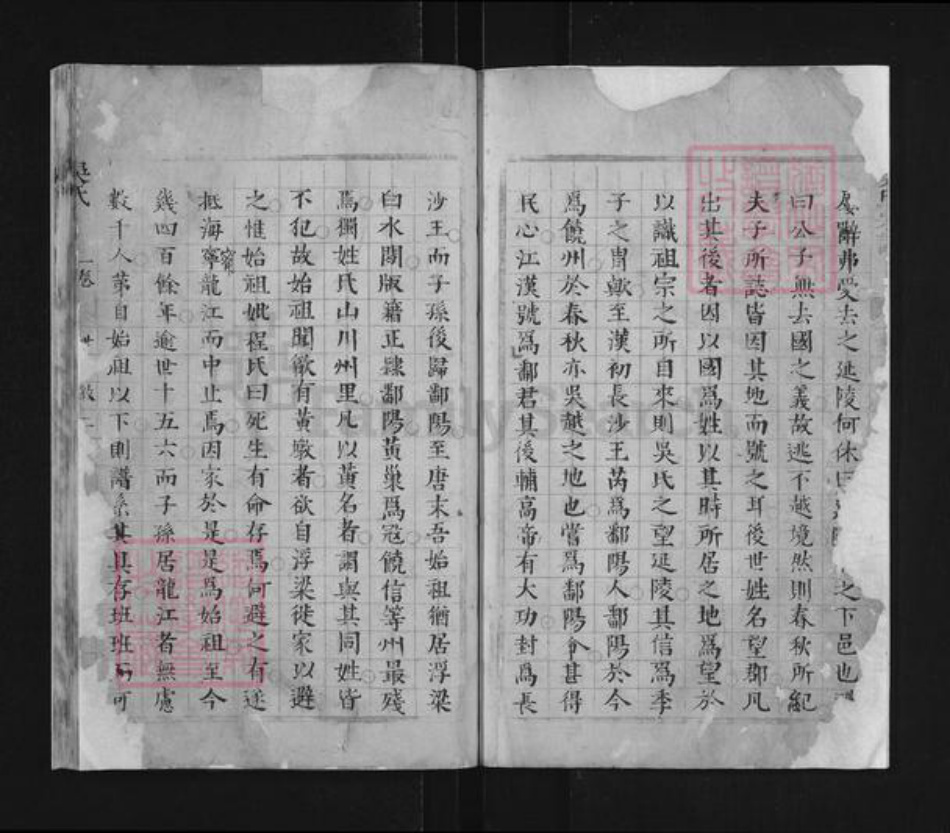 屡辭弗受去之延陵何休曰 之下邑也
曰公子無去國之義故逃不越境然則春秋所紀
夫子所誌皆因其地而號之耳後世姓名望郡凡
出其後者因以國爲姓以其時所居之地爲望於
以識祖宗之所自來則吳氏之望延陵其信爲季
子之冑歟至漢初長沙王芮爲鄱陽人鄱陽於今
爲饒州於春秋亦吳越之地也嘗爲鄱陽令甚得
民心江漢號爲鄱君其後輔高帝有大功封爲長
沙王而子孫後歸鄱陽至唐末吾始祖猶居浮梁
臼水閙版籍正隸鄱陽黃巢爲冦饒信等州最殘
焉獨姓氏山川州里凡以黃名者謂與其同姓皆
不犯故始祖聞歙有黃墩者欲自浮梁徙家以避
之惟始祖妣程氏曰死生有命存焉何避之有遂
抵海寧龍江而中止焉因家於是是爲始祖至今
甯
幾四百餘年逾世十五六而子孫居龍江者無慮
數千人第自始祖以下則譜系其具存班班 可
吳氏 一卷 世